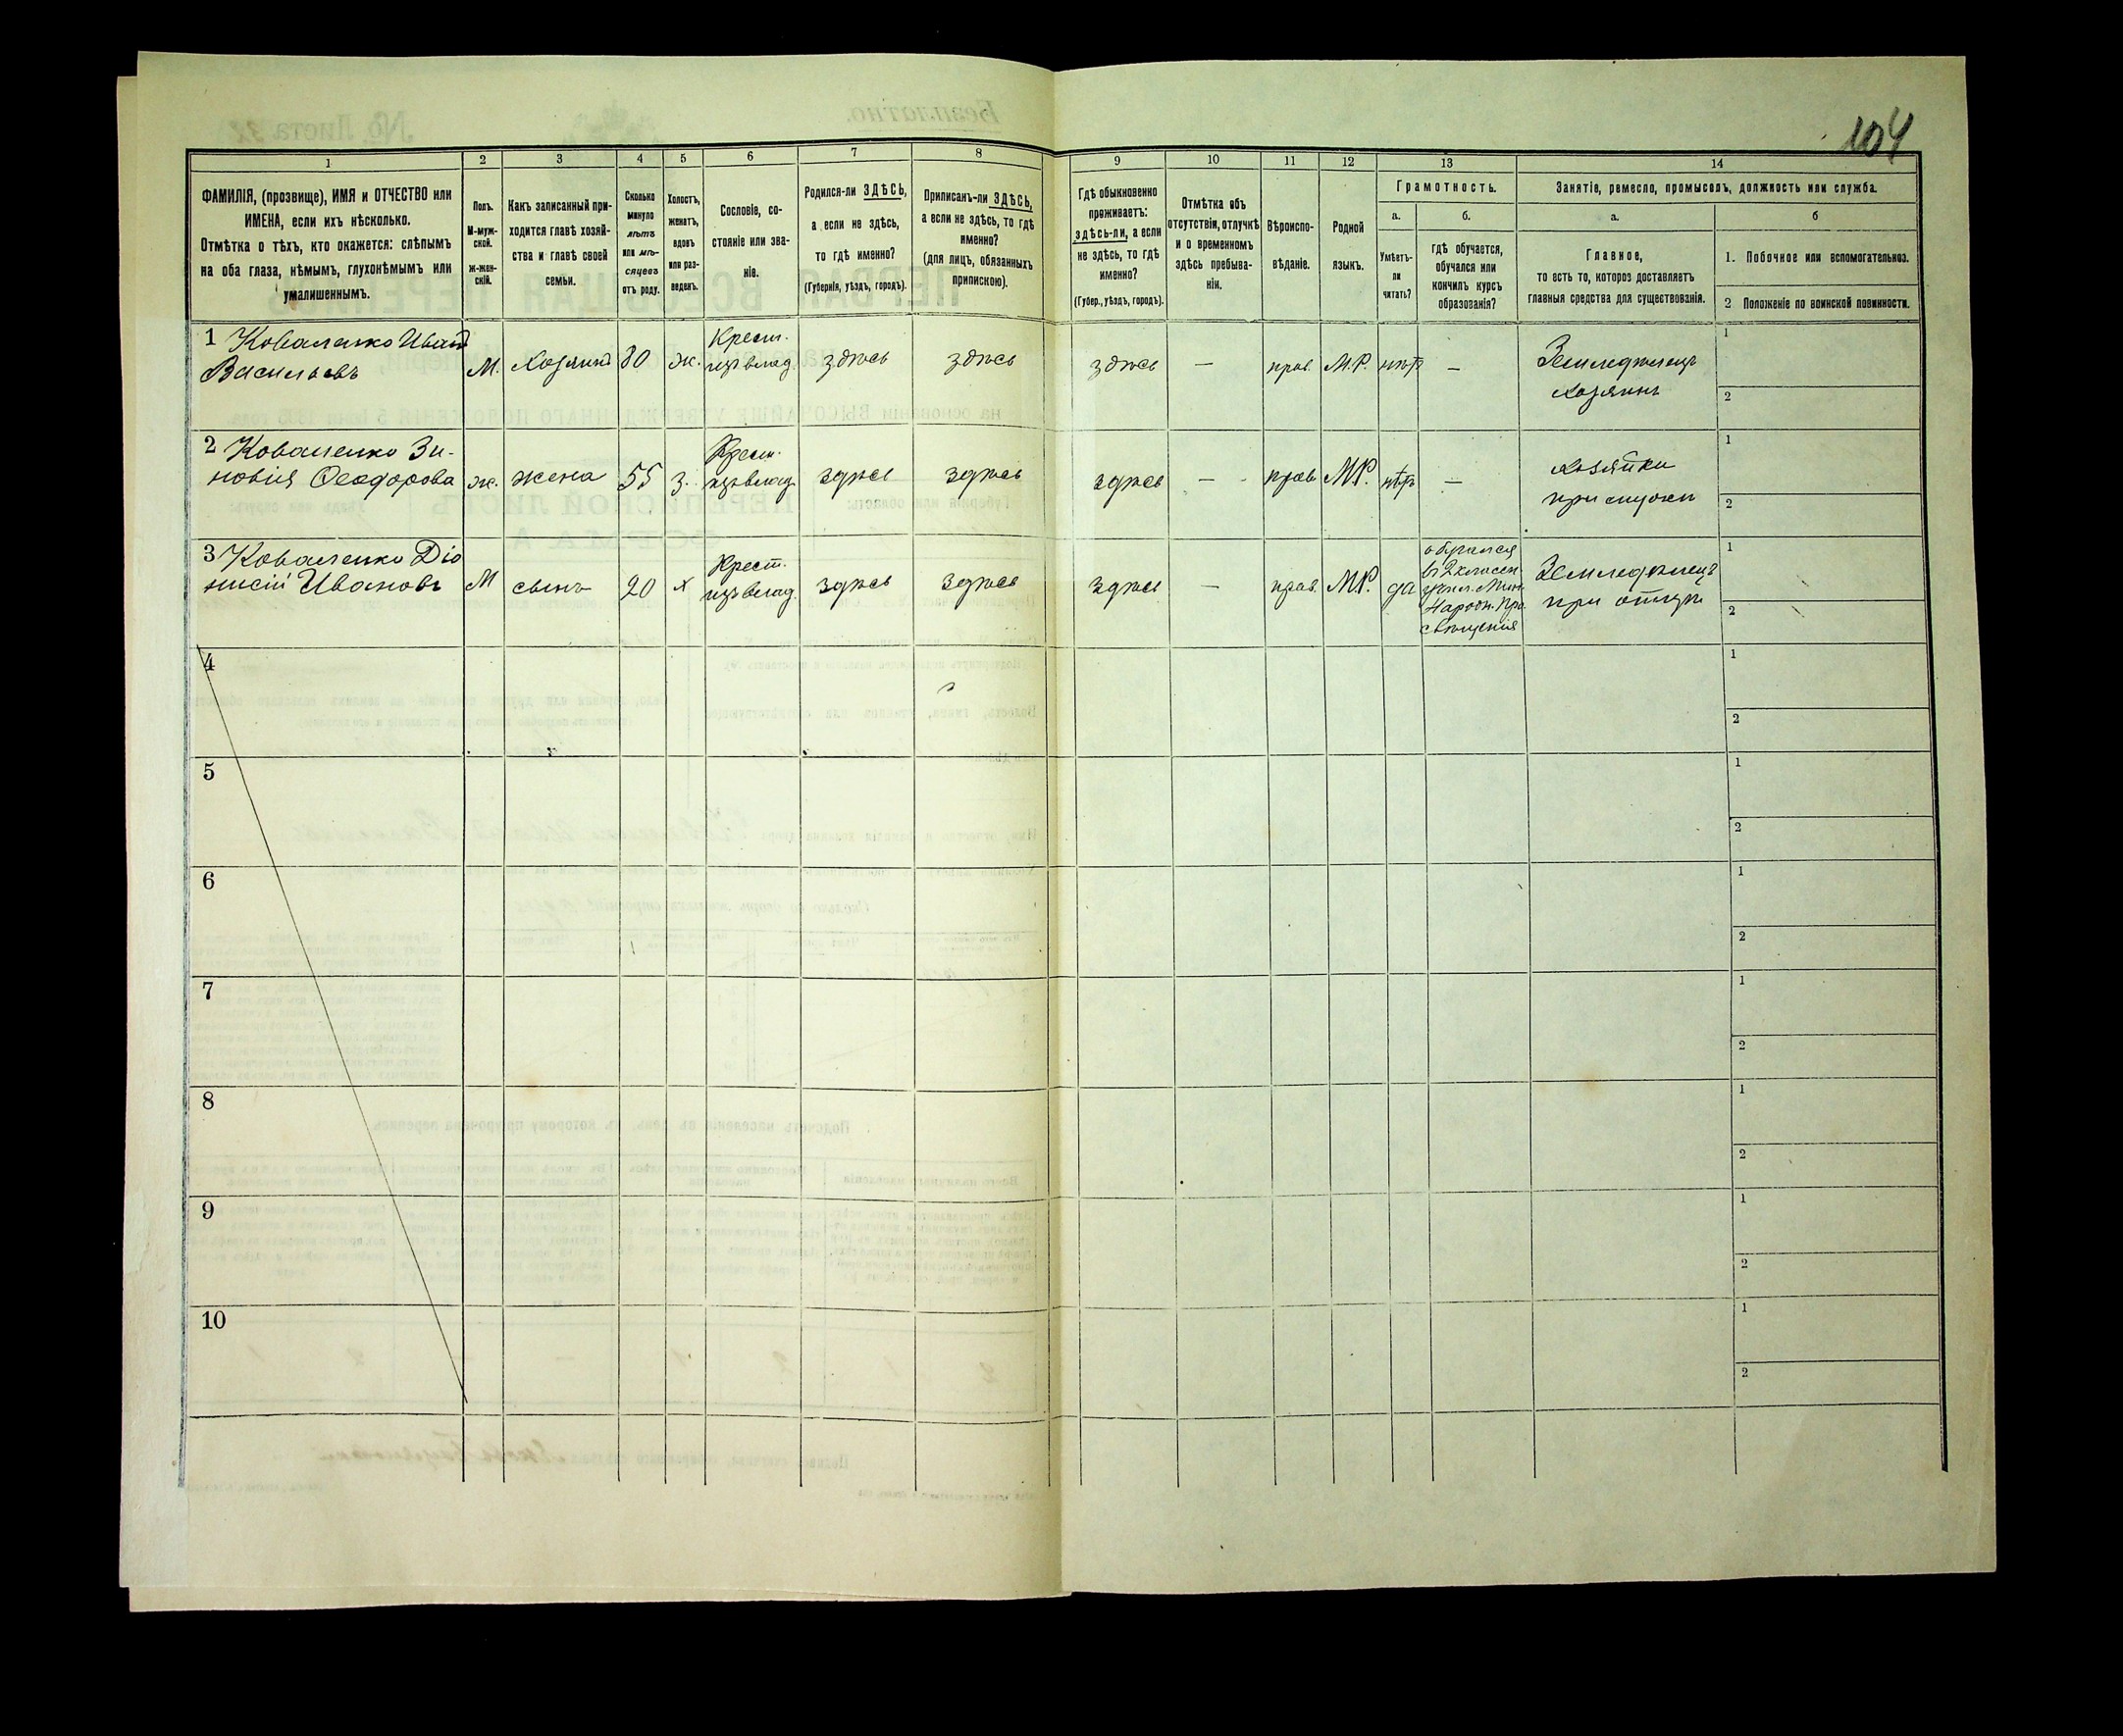 104
1
2
3
4
5
6
7
8
9
10
11
12
13
14
ФАМИЛІЯ, (прозвище), ИМЯ и ОТЧЕСТВО или
ИМЕНА, если ихъ нѣсколько.
Отмѣтка о тѣхъ, кто окажется: слѣпымъ
на оба глаза, нѣмымъ, глухонѣмымъ или
умалишеннымъ.
Полъ.
М-муж-
ской.
Ж-жен-
скій.
Какъ записанный при-
ходится главѣ хозяй-
ства и главѣ своей
семьи.
Сколько
минуло
лѣтъ
или мѣ-
сяцевъ
отъ роду.
Холостъ,
женатъ,
вдовъ
или раз-
веденъ.
Сословіе, со-
стояніе или зва-
ніе.
Родился-ли ЗДѢСЬ,
а если не здѣсь,
то гдѣ именно?
(Губернія, уѣздъ, городъ).
Приписанъ-ли ЗДѢСЬ,
а если не здѣсь, то гдѣ
именно?
(для лицъ, обязанныхъ
припискою).
Гдѣ обыкновенно
проживаетъ:
здѣсь-ли, а если
не здѣсь, то гдѣ
именно?
(Губер., уѣздъ, городъ).
Отмѣтка объ
отсутствіи, отлучкѣ
и о временномъ
здѣсь пребыва-
ніи.
Вѣроиспо-
вѣданіе.
Родной
языкъ.
Грамотность.
а.
Умѣетъ-
ли
читать?
б.
гдѣ обучается,
обучался или
кончилъ курсъ
образованія?
Занятіе, ремесло, промыселъ, должность или служба.
а.
Главное,
то есть то, которое доставляетъ
главныя средства для существованія.
б
1. Побочное или вспомогательное.
2 Положеніе по воинской повинности.
1 Коваленко Иванъ
Васильевъ
М.
Хозяинъ
60
ж.
Крест.
изъ влад.
здѣсь
здѣсь
здѣсь
—
прав.
М.Р.
нѣтъ
—
Земледѣлецъ
хозяинъ
1
2
2 Коваленко Зи-
новія Ѳеодорова
ж.
жена
55
з.
Крест.
изъ влад.
здѣсь
здѣсь
здѣсь
—
прав.
М.Р.
нѣтъ
—
хозяйка
при мужѣ
1
2
3 Коваленко Діо
нисій Ивановъ
М
сынъ
20
х
Крест.
изъ влад.
здѣсь
здѣсь
здѣсь
—
прав.
М.Р.
да
обучался
въ 2 класен.
учил. Мин.
Народн. Про
свѣщенія
Земледѣлецъ
при отцѣ
1
2
4
1
2
5
1
2
6
1
2
7
1
2
8
1
2
9
1
2
10
1
2